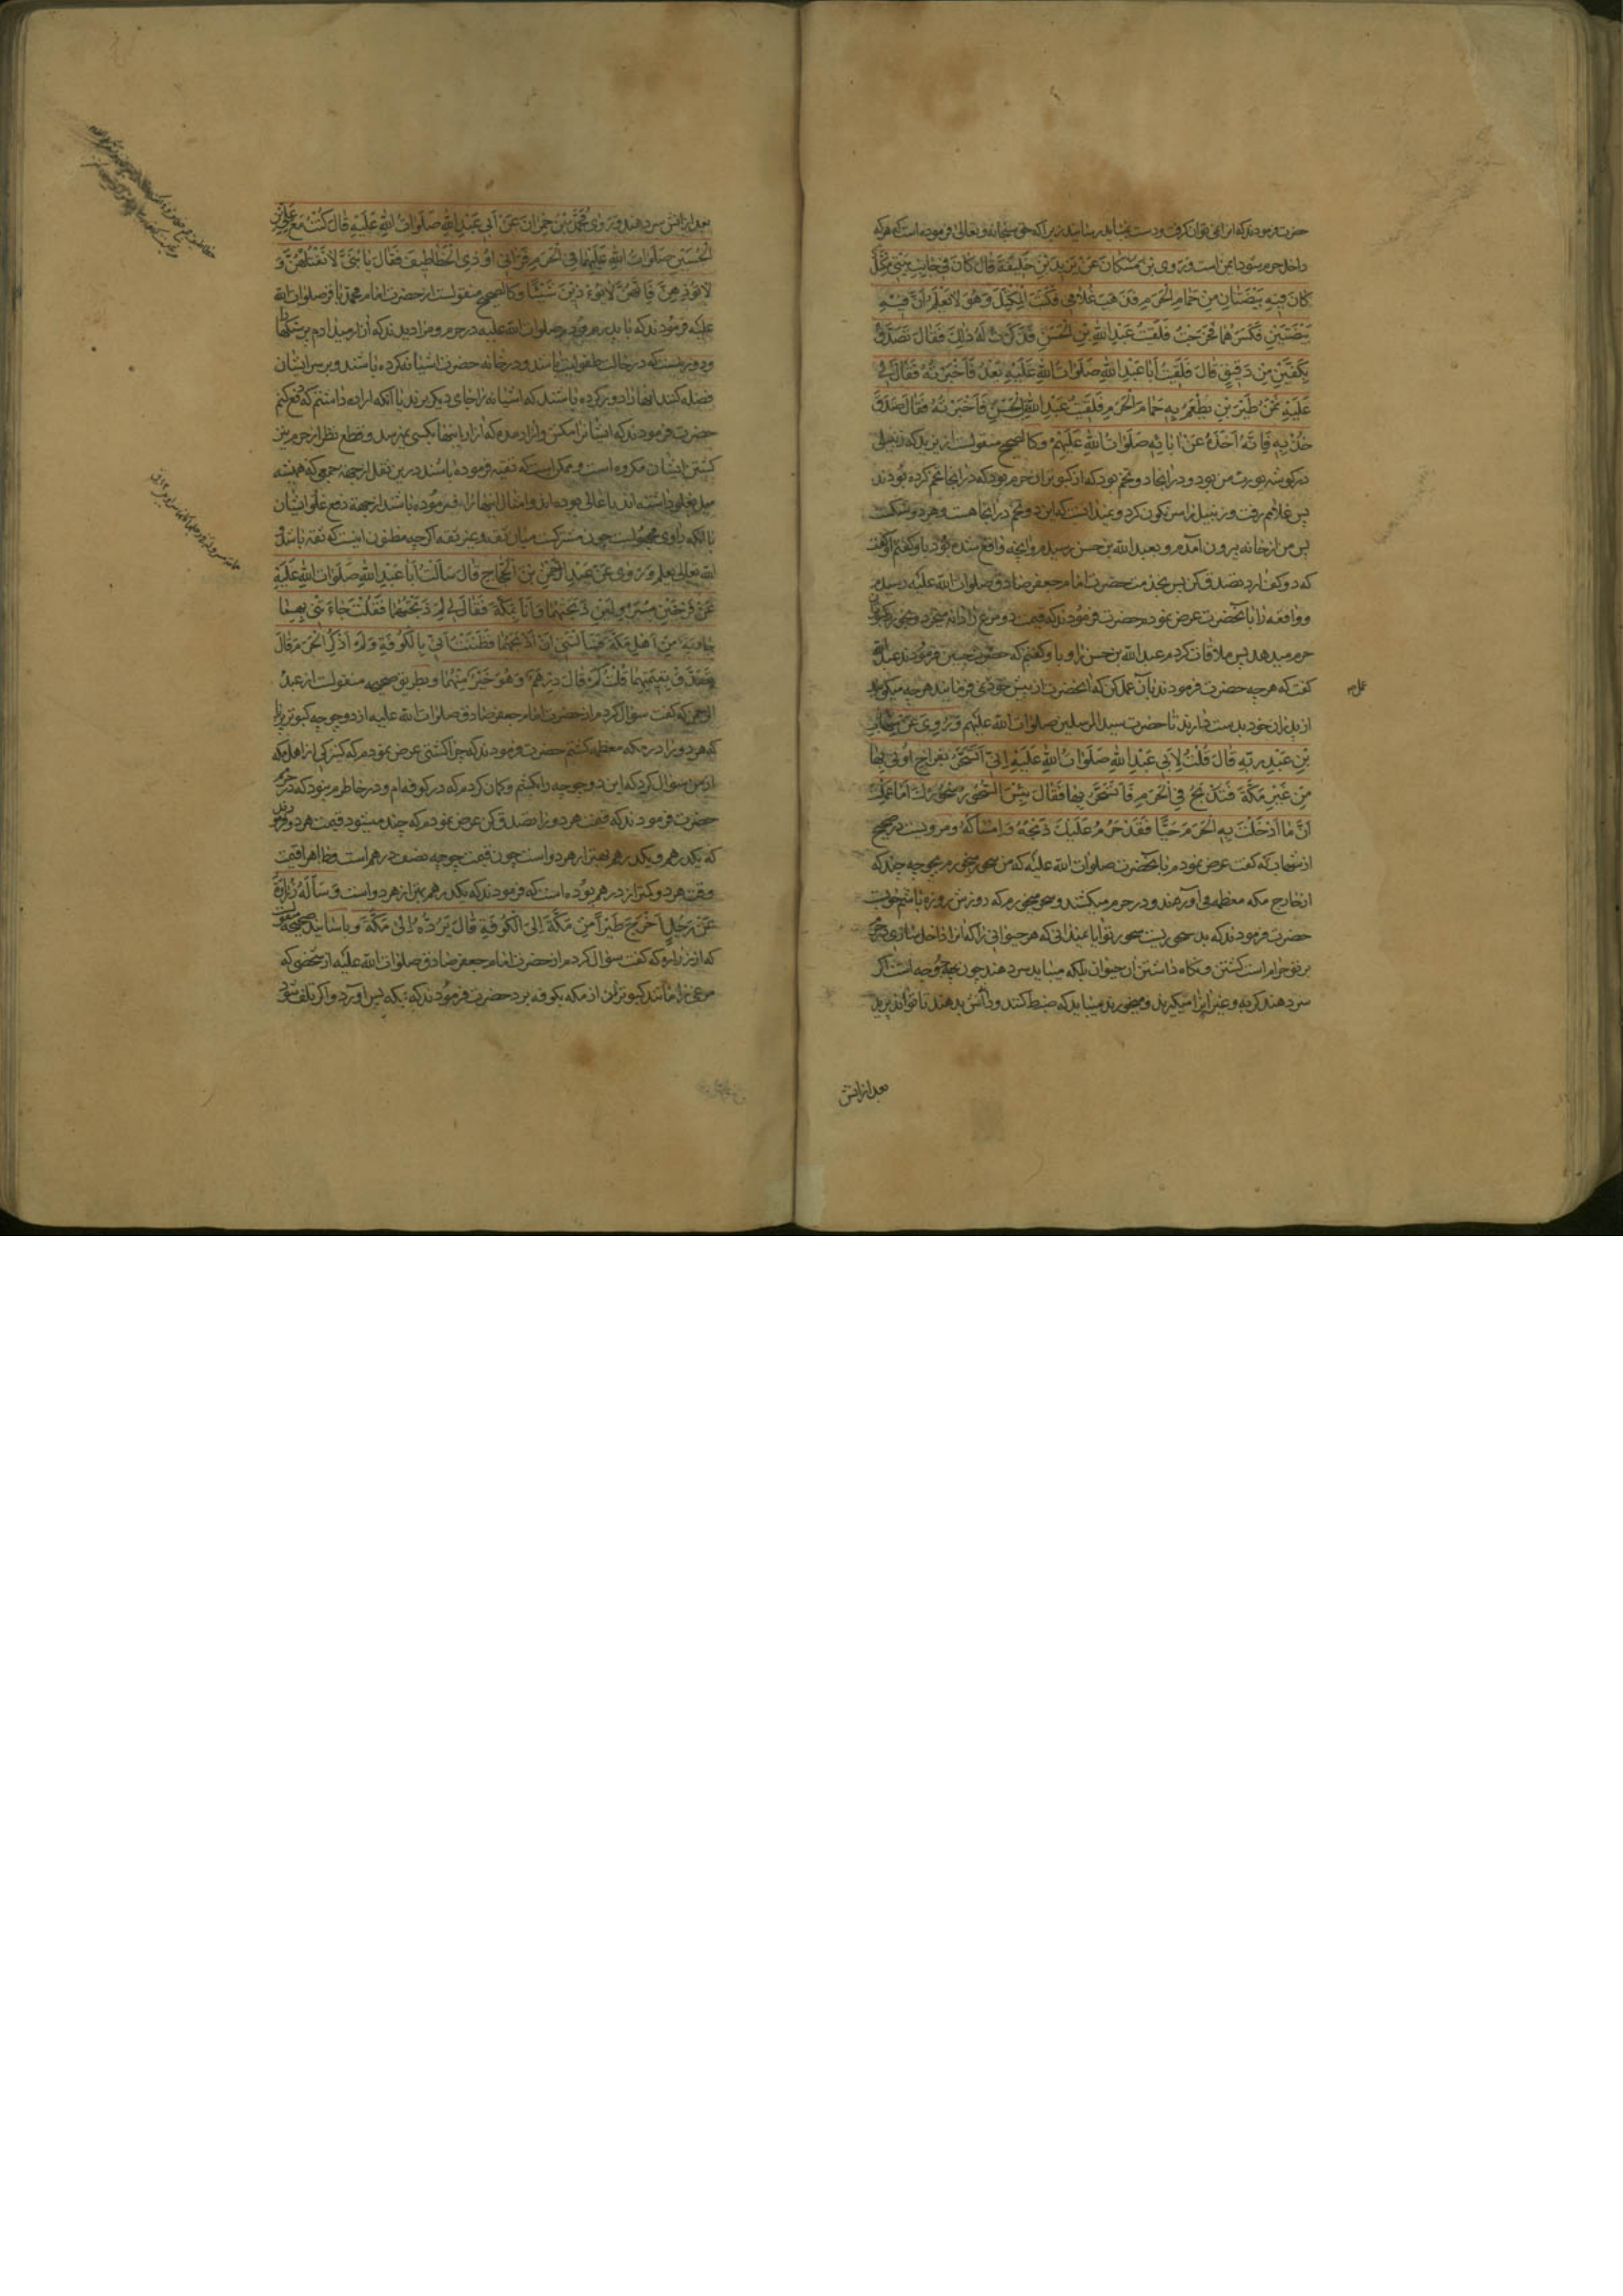 حضرت فرمودند که انرا نمی توان گرفت و دست نمی باید رسانید زیرا که حق سبحانه و تعالی فرموده است که هر که
داخل حرم شود ایمن است وَ رَوی بْن مُسْکانَ عَنْ یَزیدَ بْنِ خَلیفَةَ قالَ کانَ فی جانِبِ بَیْتی مِکْتَلٌ
کانَ فیهِ بَیْضَتانِ مِنْ حَمامِ الْحَرَمِ فَذَهَبَ غُلامی فَکَبَّ الْمِکْتَلَ وَ هُوَ لا یَعْلَمُ اَنَّ فیهِ
بَیْضَتَیْنِ فَکَسَرَهُما فَخَرَجْتُ فَلَقیتُ عَبْدَ اللهِ بْنَ الْحَسَنِ فَذَکَرْتُ لَهُ ذلِکَ فَقالَ تَصَدَّقْ
بِکَفَّیْنِ مِنْ دَقیقٍ قالَ فَلَقیتُ اَبا عَبْدِ اللهِ صَلَواتُ اللهِ عَلَیْهِ بَعْدُ فَاَخْبَرْتُهُ فَقالَ لی
عَلَیْهِ ثَمَنُ طَیْرَیْنِ یُطْعِمُ بِهِ حَمامَ الْحَرَمِ فَلَقیتُ عَبْدَ اللهِ بْنَ الْحَسَنِ فَاَخْبَرْتُهُ فَقالَ صَدَقَ
خُذْ بِهِ فَاِنَّهُ اَخَذَهُ عَنْ ابائِهِ صَلَواتُ اللهِ عَلَیْهِمْ و کالصحیح منقولست از یزید که زنبیلی
در گوشه بیت من بود و در انجا دو تخم بود که از کبوتران حرم بود که در انجا تخم کرده بودند
پس غلامم رفت و زنبیل را سرنگون کرد و نمیدانست که این دو تخم در انجا هست و هر دو شکست
پس من از خانه بیرون آمدم و بعبد الله بن حسن رسیدم و آنچه واقع شده بود باو گفتم او گفت
که دو کف ارد تصدق کن پس بخدمت حضرت امام جعفر صادق صلوات الله علیه رسیدم
و واقعه را با آنحضرت عرض نمودم حضرت فرمودند که قیمت دو مرغ را دانه میخرد و بخورد کبوتران
حرم میدهد پس ملاقات کردم عبد الله بن حسن را و باو گفتم که حضرت چنین فرمودند عبد الله
گفت که هر چه حضرت فرمودند بآن عمل کن که انحضرت از پیش خود نمی فرمایند هر چه میگوید
از پدران خود بدست دارند تا حضرت سید المرسلین صلوات الله علیهم وَ رُوِیَ عَنْ شِهابِ
بْنِ عَبْدِ رَبِّهِ قالَ قُلْتُ لِاَبی عَبْدِ اللهِ صَلَواتُ اللهِ عَلَیْهِ اِنّی اَتَسَحَّرُ بِفِراخٍ اُوتی بِها
مِنْ غَیْرِ مَکَّةَ فَتُذْبَحُ فِی الْحَرَمِ فَاَتَسَحَّرُ بِها فَقالَ بِئْسَ السَّحُورُ سَحُورُکَ اَما عَلِمْتَ
اَنَّ ما اَدْخَلْتَ بِهِ الْحَرَمَ حَیّاً فَقَدْ حَرُمَ عَلَیْکَ ذَبْحُهُ وَ اِمْساکُهُ و مرویست در صحیح
از شهاب که گفت عرض نمودم بانحضرت صلوات الله علیه که من سحور میخورم بجوجه چند که
از خارج مکه معظمه می آورند و در حرم میکشند و سحور میخورم که روزش روزه باشم
حضرت فرمودند که بد سحوریست سحور تو ایا نمیدانی که هر حیوانی را که انرا داخل سازی در حرم
بر تو حرام است کشتن و نگاه داشتن ان حیوان بلکه میباید سر دهند چون جوجه است اگر
سر دهند گربه و غیر انرا میگیرند و میخورند میباید که ضبط کنند و دانش بدهند تا تواند پرید
بعد از انش
عمل
بعد از انش سر دهند وَ رَوی مُحَمَّدُ بْنُ حُمْرانَ عَنْ اَبی عَبْدِ اللهِ صَلَواتُ اللهِ عَلَیْهِ قالَ کُنْتُ مَعَ عَلِیِّ بْنِ
الْحُسَیْنِ صَلَواتُ اللهِ عَلَیْهِما فِی الْحَرَمِ فَرَانی اُوذِی الْخَطاطیفَ فَقالَ یا بُنَیَّ لا تَقْتُلْهُنَّ وَ
لا تُوذِهِنَّ فَاِنَّهُنَّ لا یُوذینَ شَیْئاً و کالصحیح منقولست از حضرت امام محمد باقر صلوات الله
علیه فرمودند که با پدرم بودم صلوات الله علیه در حرم و مرا دیدند که ازار میدادم پرستکها را
و دور نیست که در حالت طفولیت باشند و در خانه حضرت اشیانه کرده باشند و بر سر ایشان
فضله کنند انها را دور کرده باشند که اشیانه را جای دیگر برند یا آنکه اراده داشتم که دفع کنم
حضرت فرمودند که ایشانرا مکش و ازار مده که ازار اینها بکسی نمیرسد و قطع نظر از حرم نیز
کشتن ایشان مکروه است و ممکن است که تقیه فرموده باشند درین نقل از جهة جمعی که همیشه
میل بغلو داشته اند یا غالی بوده اند و امثال اینها را فرموده باشند از جهة دفع غلو ایشان
با انکه راوی مجهولست چون مشترکست میان ثقه و غیر ثقه اگر چه مظنون اینست که ثقه باشد و
الله تعالی یعلم وَ رَوی عَنْ عَبْدِ الرَّحْمنِ بْنِ الْحَجّاجِ قالَ سَاَلْتُ اَبا عَبْدِ اللهِ صَلَواتُ اللهِ عَلَیْهِ
عَنْ فَرْخَیْنِ مُسَرْوَلَیْنِ ذَبَحْتُهُما وَ اَنَا بِمَکَّةَ فَقالَ لی لِمَ ذَبَحْتَهُما فَقُلْتُ جاءَتْنی بِهِما
جارِیَةٌ مِنْ اَهْلِ مَکَّةَ فَسَاَلَتْنی اَنْ اَذْبَحَهُما فَظَنَنْتُ اَنّی بِالْکُوفَةِ وَ لَمْ اَذْکُرِ الْحَرَمَ قالَ
تَصَدَّقْ بِقیمَتِهِما قُلْتُ کَمْ قالَ دِرْهَمٌ وَ هُوَ خَیْرٌ مِنْهُما و بطریق صحیحه منقولست از عبد
الرحمن که گفت سؤال کردم از حضرت امام جعفر صادق صلوات الله علیه از دو جوجه کبوتر پرپا
که هر دو را در مکه معظمه کشتم حضرت فرمودند که چرا کشتی عرض نمودم که کنیزکی از اهل مکه
از من سؤال کرد که این دو جوجه را بکشم و گمان کردم که در کوفه ام و در خاطرم نبود که در حرمم
حضرت فرمودند که قیمت هر دو را تصدق کن عرض نمودم که چند میشود قیمت هر دو فرمودند
که یکدرهم و یکدرهم بهتر از هر دو است چون قیمت جوجه نصف درهم است و ظاهرا قیمت
وقت هر دو کمتر از درهم بوده است که فرمودند که یکدرهم بهتر از هر دو است وَ سَاَلَهُ زُرارَةُ
عَنْ رَجُلٍ اَخْرَجَ طَیْراً مِنْ مَکَّةَ اِلَی الْکُوفَةِ قالَ یَرُدُّهُ اِلی مَکَّةَ و باسانید صحیحه منقولست
که از زراره که گفت سؤال کردم از حضرت امام جعفر صادق صلوات الله علیه از شخصی که
مرغی را مانند کبوتران از مکه بکوفه برد حضرت فرمودند که بمکه پس آورد و اگر تلف شود